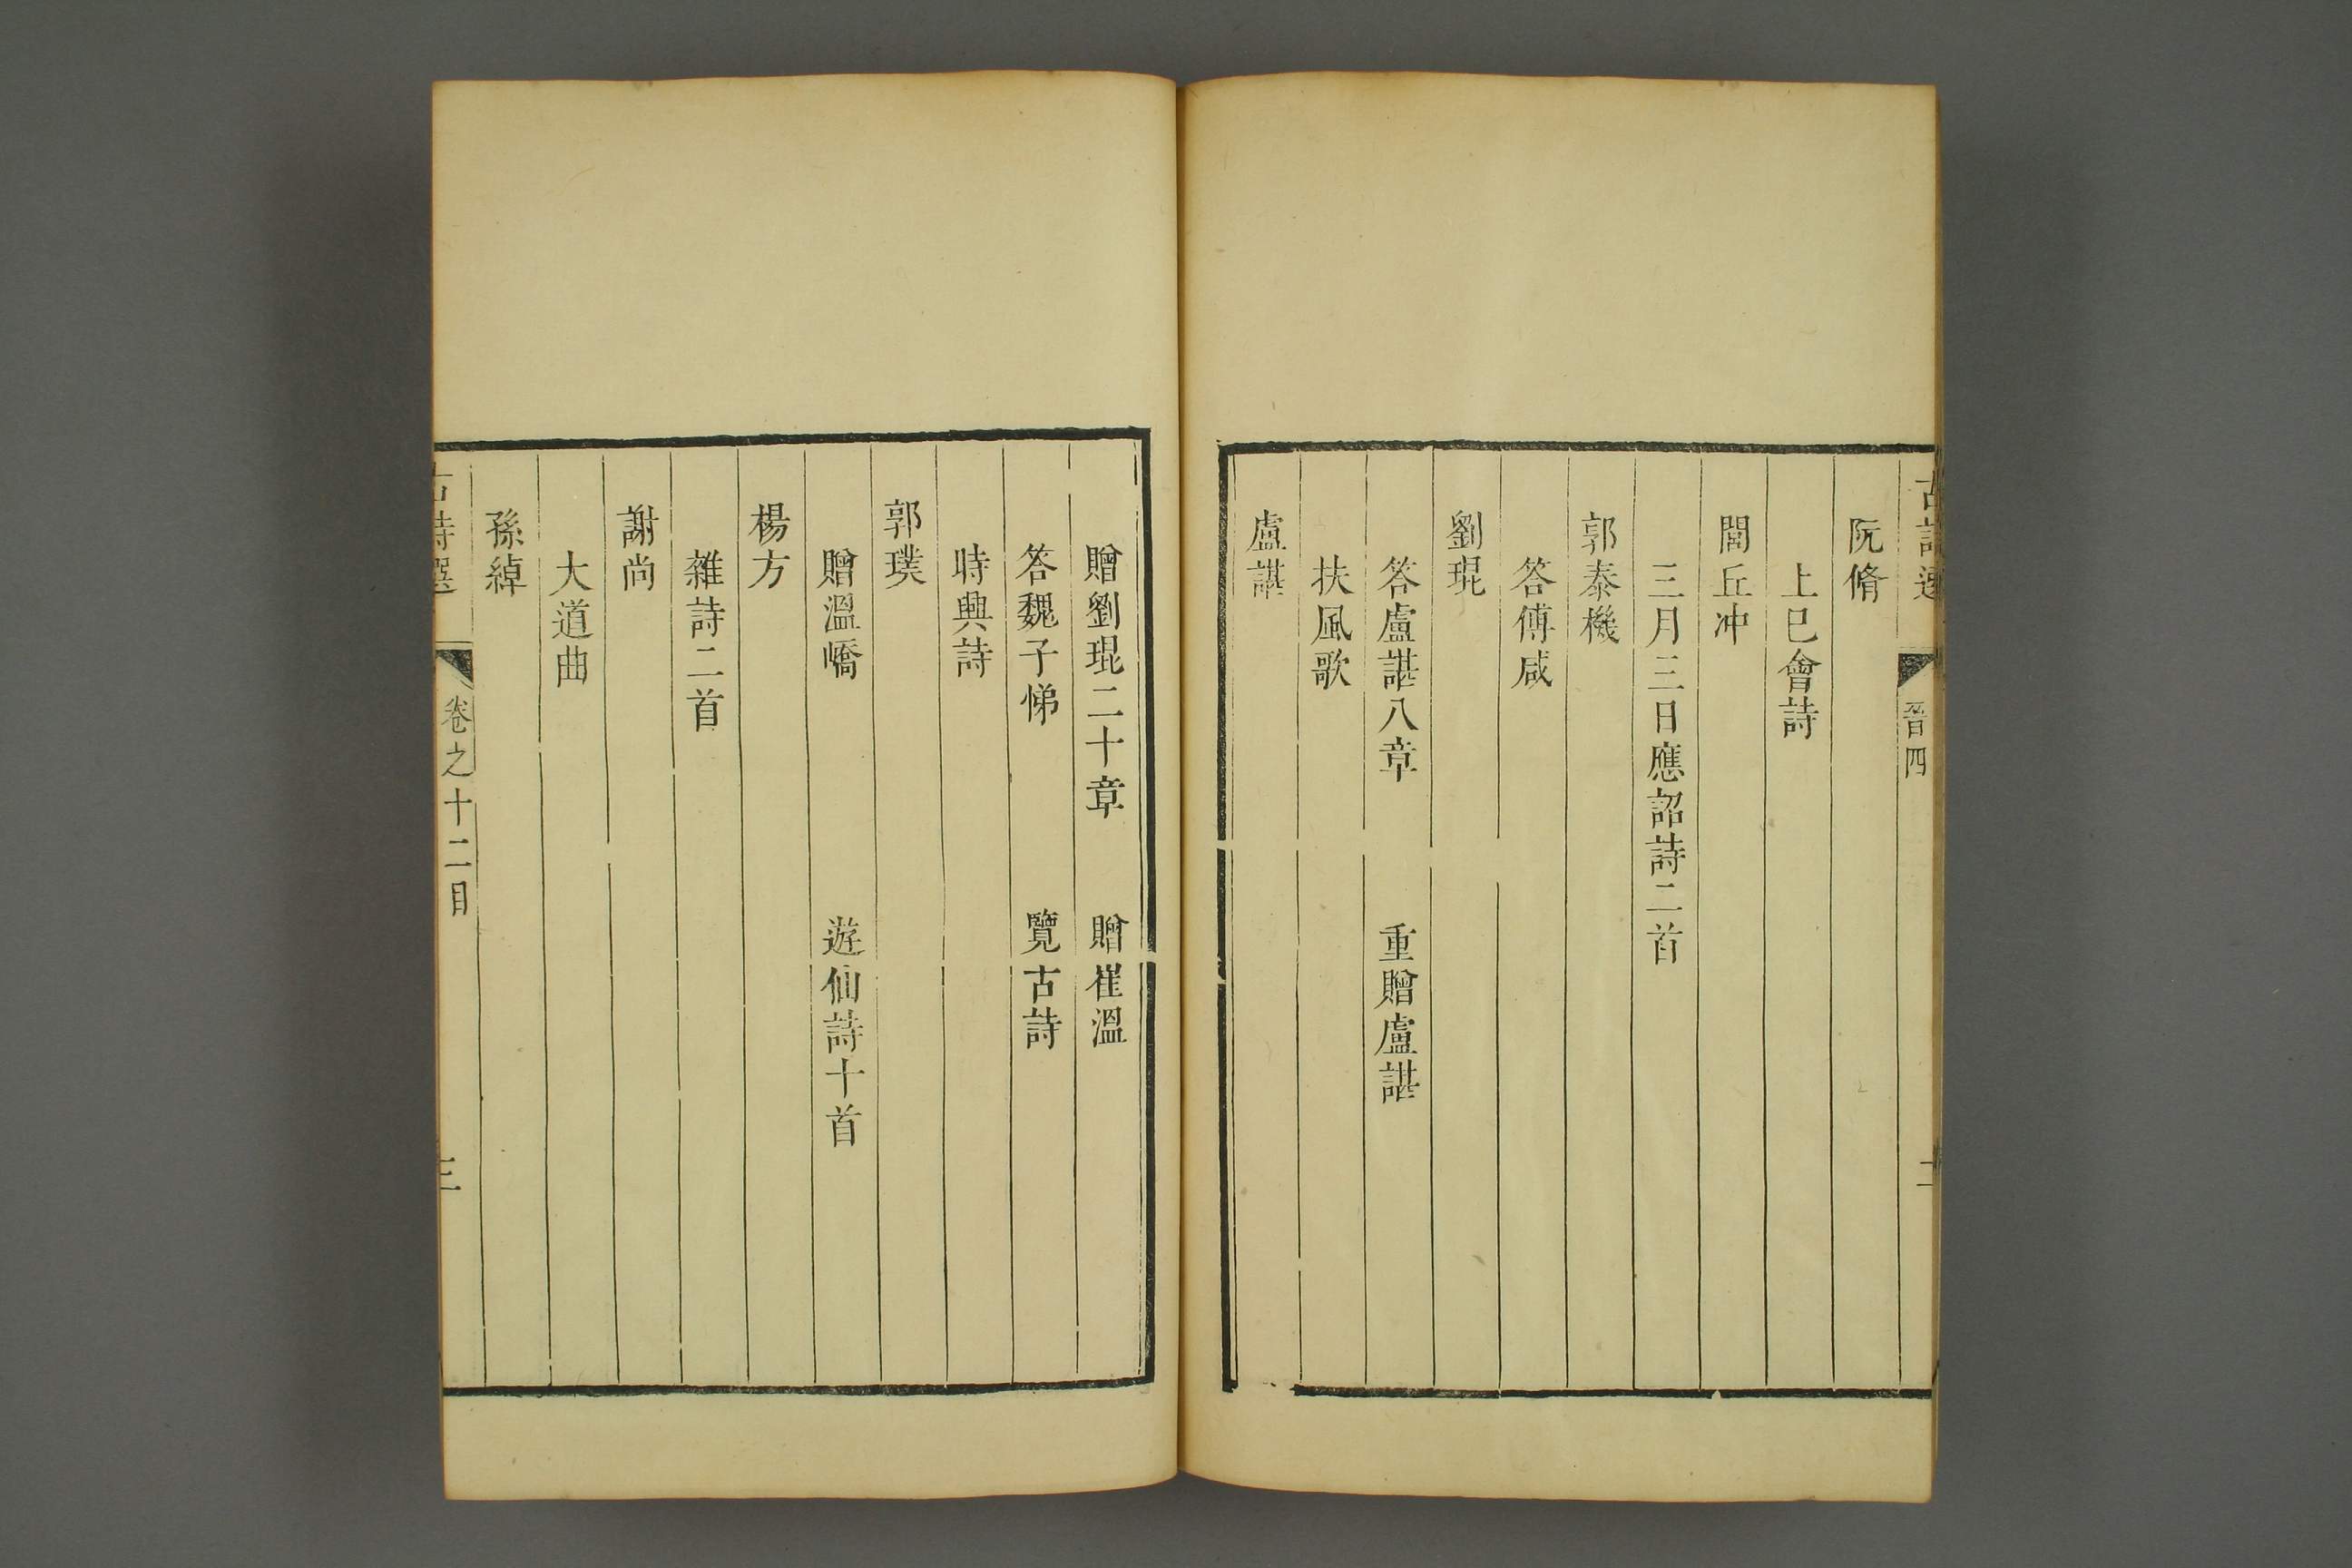 古詩選 晉四 二
阮脩
上巳會詩
閭丘冲
三月三日應詔詩二首
郭泰機
答傅咸
劉琨
答盧諶八章 重贈盧諶
扶風歌
盧諶
贈劉琨二十章 贈崔溫
答魏子悌 覽古詩
時興詩
郭璞
贈溫嶠 遊仙詩十首
楊方
雜詩二首
謝尚
大道曲
孫綽
古詩選 卷之十二目 三